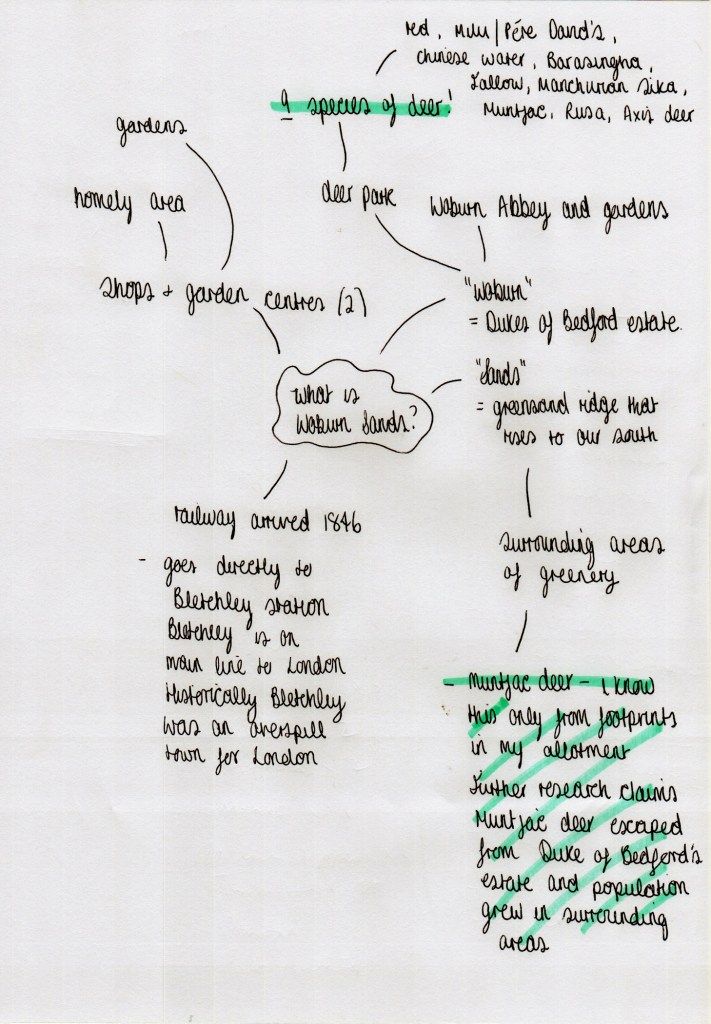 red, Milu/Pére David's,
chinese water, Barasingha,
Fallow, Manchurian Sika,
Muntjac, Rusa, Axis deer
9 species of deer!
gardens
homely area
deer park
Woburn Abbey and gardens
shops + garden centres (2)
"Woburn"
= Dukes of Bedford estate.
"Sands"
= greensand ridge that
rises to our south
What is
Woburn Sands?
railway arrived 1846
- goes directly to
Bletchley station
Bletchley is on
main line to London
Historically Bletchley
was an overspill
town for London
surrounding areas
of greenery
- Muntjac deer - I know
this only from footprints
in my allotment
Further research claims
Muntjac deer escaped
from Duke of Bedford's
estate and population
grew in surrounding
areas